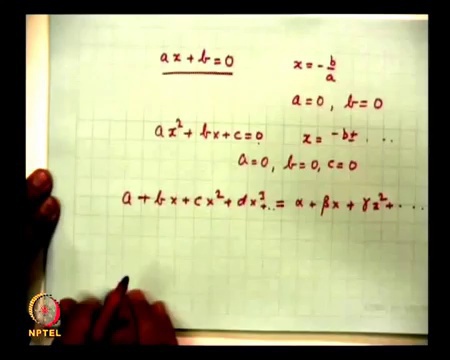 ax + b = 0    x = -b/a
a = 0, b = 0
ax² + bx + c = 0    x = -b± ...
a = 0, b = 0, c = 0
a + bx + cx² + dx³ + .. = α + βx + γx² + ....
NPTEL